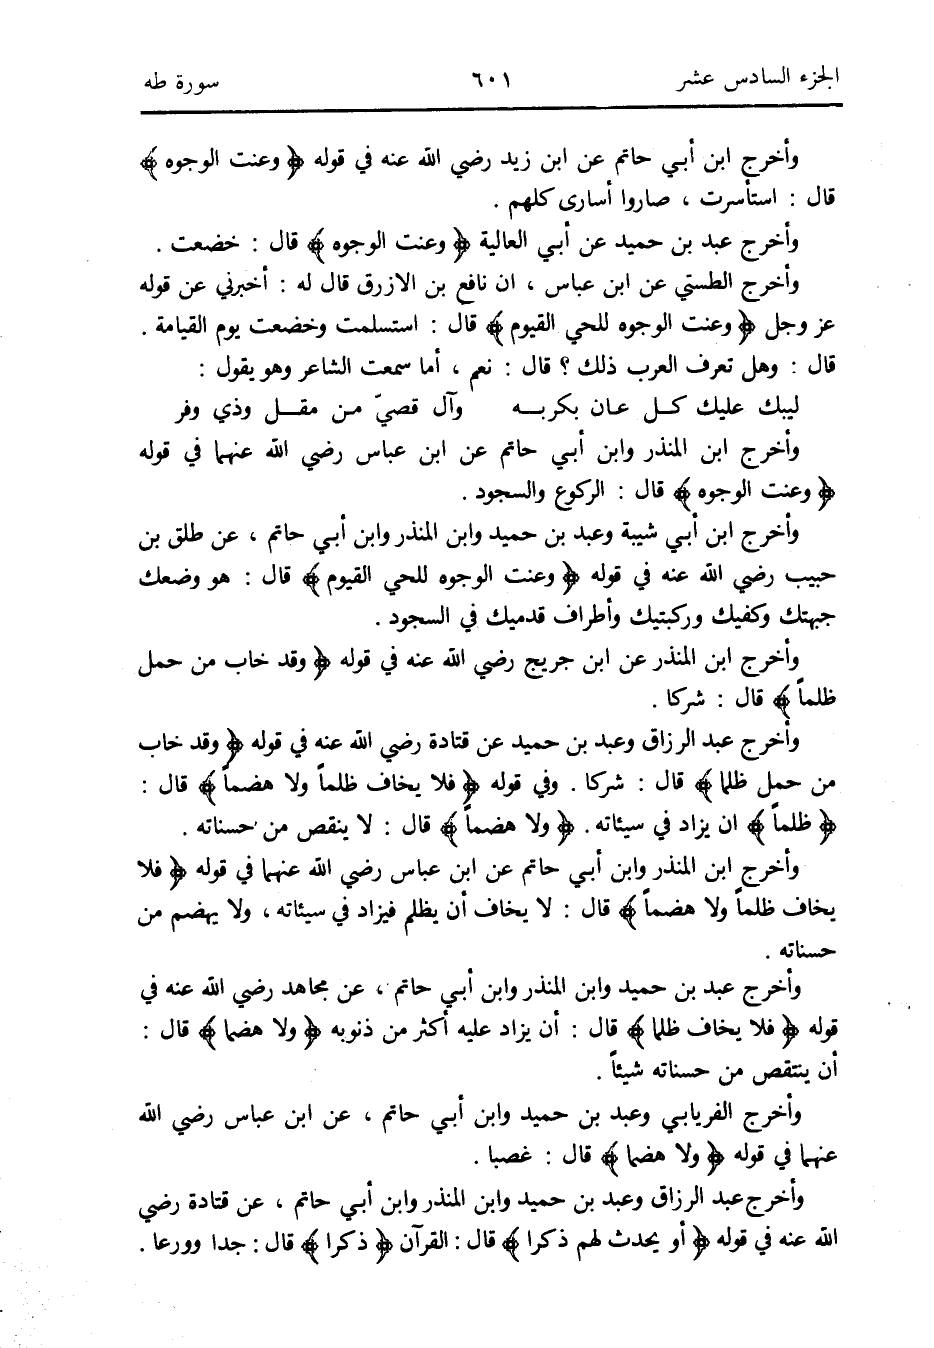 الجزء السادس عشر ٦٠١ سورة طه
وأخرج ابن أبي حاتم عن ابن زيد رضي الله عنه في قوله ﴿ وعنت الوجوه ﴾
قال : استأسرت ، صاروا أسارى كلهم .
وأخرج عبد بن حميد عن أبي العالية ﴿ وعنت الوجوه ﴾ قال : خضعت .
وأخرج الطستي عن ابن عباس ، ان نافع بن الازرق قال له : أخبرني عن قوله
عز وجل ﴿ وعنت الوجوه للحي القيوم ﴾ قال : استسلمت وخضعت يوم القيامة .
قال : وهل تعرف العرب ذلك ؟ قال : نعم ، أما سمعت الشاعر وهو يقول :
ليبك عليك كل عان بكربه وآل قصيّ من مقل وذي وفر
وأخرج ابن المنذر وابن أبي حاتم عن ابن عباس رضي الله عنهما في قوله
﴿ وعنت الوجوه ﴾ قال : الركوع والسجود .
وأخرج ابن أبي شيبة وعبد بن حميد وابن المنذر وابن أبي حاتم ، عن طلق بن
حبيب رضي الله عنه في قوله ﴿ وعنت الوجوه للحي القيوم ﴾ قال : هو وضعك
جبهتك وكفيك وركبتيك وأطراف قدميك في السجود .
وأخرج ابن المنذر عن ابن جريج رضي الله عنه في قوله ﴿ وقد خاب من حمل
ظلماً ﴾ قال : شركا .
وأخرج عبد الرزاق وعبد بن حميد عن قتادة رضي الله عنه في قوله ﴿ وقد خاب
من حمل ظلما ﴾ قال : شركا . وفي قوله ﴿ فلا يخاف ظلماً ولا هضماً ﴾ قال :
﴿ ظلماً ﴾ ان يزاد في سيئاته . ﴿ ولا هضماً ﴾ قال : لا ينقص من حسناته .
وأخرج ابن المنذر وابن أبي حاتم عن ابن عباس رضي الله عنهما في قوله ﴿ فلا
يخاف ظلماً ولا هضماً ﴾ قال : لا يخاف أن يظلم فيزاد في سيئاته ، ولا يهضم من
حسناته .
وأخرج عبد بن حميد وابن المنذر وابن أبي حاتم ، عن مجاهد رضي الله عنه في
قوله ﴿ فلا يخاف ظلما ﴾ قال : أن يزاد عليه أكثر من ذنوبه ﴿ ولا هضما ﴾ قال :
أن ينتقص من حسناته شيئاً .
وأخرج الفريابي وعبد بن حميد وابن أبي حاتم ، عن ابن عباس رضي الله
عنهما في قوله ﴿ ولا هضما ﴾ قال : غصبا .
وأخرج عبد الرزاق وعبد بن حميد وابن المنذر وابن أبي حاتم ، عن قتادة رضي
الله عنه في قوله ﴿ أو يحدث لهم ذكرا ﴾ قال : القرآن ﴿ ذكرا ﴾ قال : جدا وورعا .